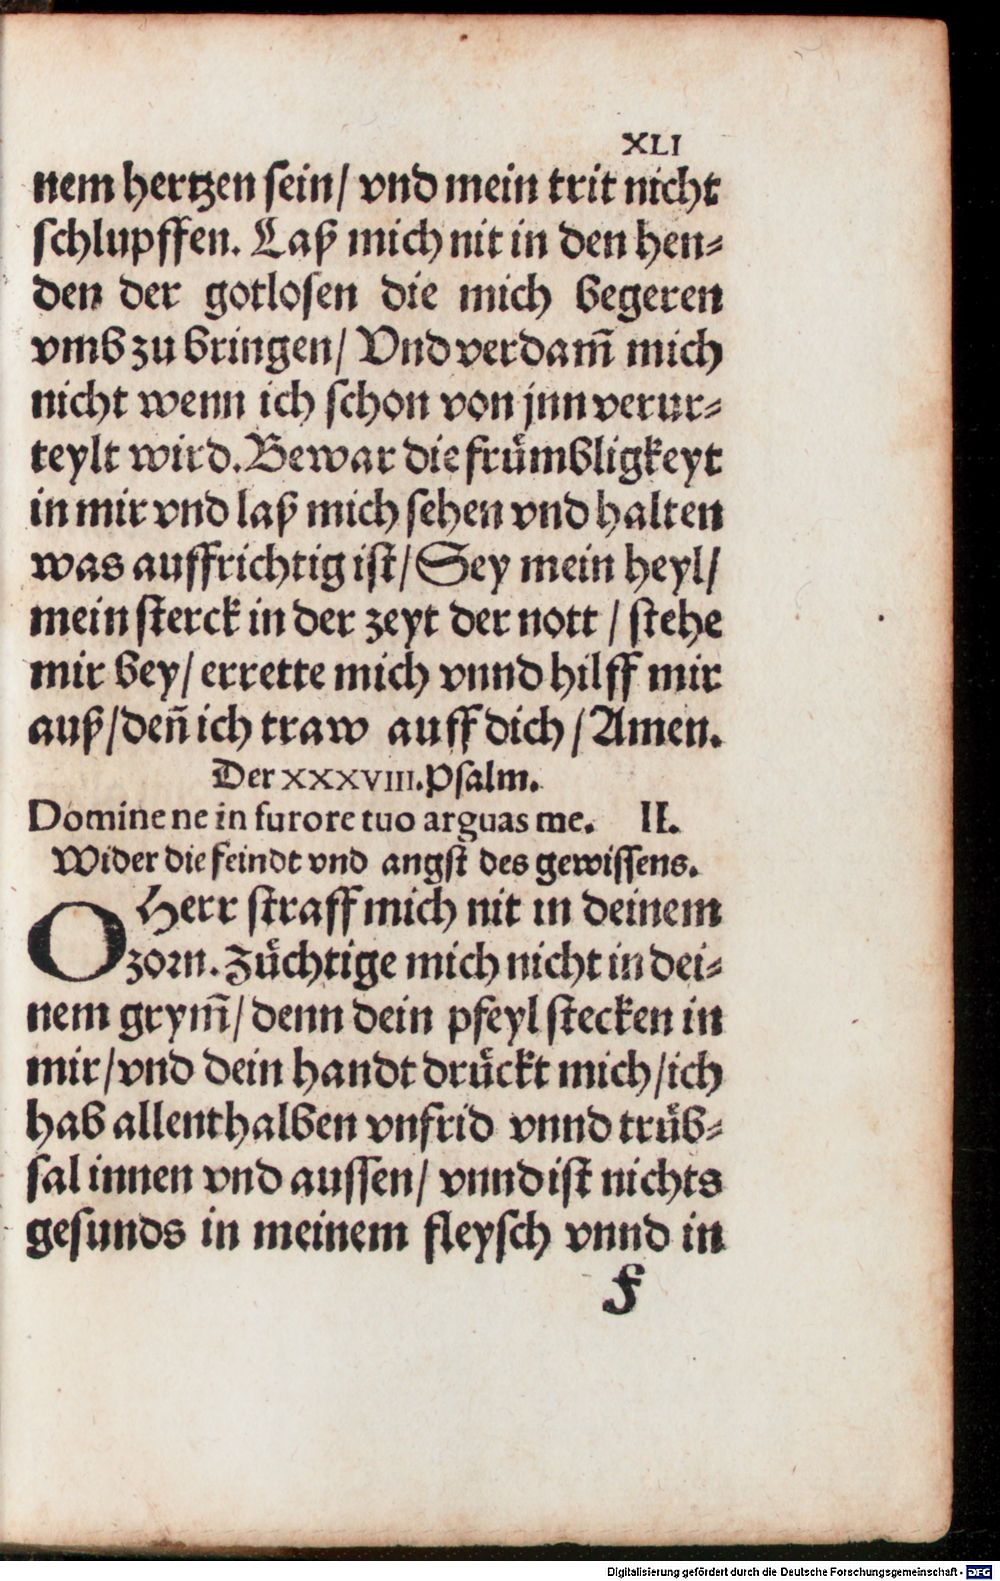 XLI
nem hertzen sein/ vnd mein trit nicht
schlupffen. Laß mich nit in den hen⸗
den der gotlosen die mich begeren
vmb zu bringen/ Vnd verdam̃ mich
nicht wenn ich schon von jnn verur⸗
teylt wird. Bewar die fruͤmbligkeyt
in mir vnd laß mich sehen vnd halten
was auffrichtig ist/ Sey mein heyl/
mein sterck in der zeyt der nott / stehe
mir bey/ errette mich vnnd hilff mir
auß/ deñ ich traw auff dich / Amen.
Der XXXVIII. Psalm.
Domine ne in furore tuo arguas me. II.
Wider die feindt vnd angst des gewissens.
O Herr straff mich nit in deinem
zorn. Zuͤchtige mich nicht in dei⸗
nem grym̃/ denn dein pfeyl stecken in
mir/ vnd dein handt druͤckt mich/ ich
hab allenthalben vnfrid vnnd truͤb⸗
sal innen vnd aussen/ vnnd ist nichts
gesunds in meinem fleysch vnnd in
f
Digitalisierung gefördert durch die Deutsche Forschungsgemeinschaft - DFG